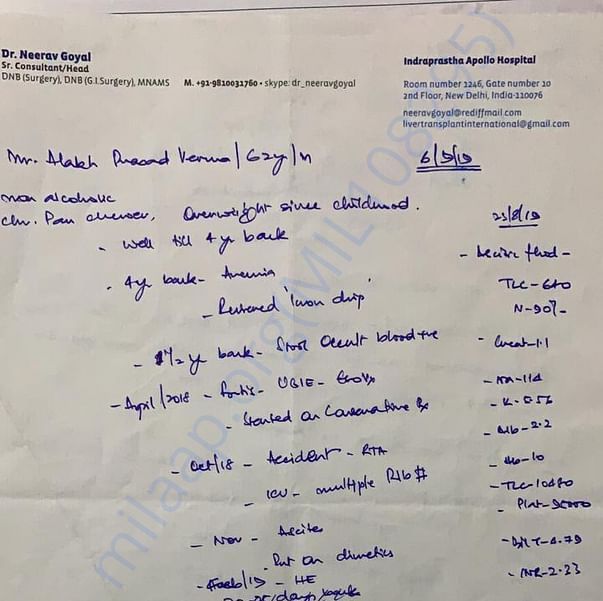 Dr. Neerav Goyal
Sr. Consultant/Head
DNB (Surgery), DNB (G.I.Surgery), MNAMS M. +91-9810031760 • skype: dr_neeravgoyal
Indraprastha Apollo Hospital
Room number 1246, Gate number 10
2nd Floor, New Delhi, India-110076
neeravgoyal@rediffmail.com
livertransplantinternational@gmail.com
Mr. Alakh Prasad Verma / 62y / M
6/9/19
non alcoholic
Chr. Pan chewer, Overweight since childhood.
- Well till 4 yr back
- 4yr back - Anemia
- Received 'Iron drip'
- 1½ yr back - Stool Occult blood +ve
- April/2018 - Fortis - UGIE -
- Started on Conservative Rx
- Oct/18 - Accident - RTA
- ICU - multiple Rib #
- Nov - Ascites
- Put on diuretics
- Feb/19 - HE
23/8/19
TLC - 640
N - 90%
- Creat - 1.1
- Na - 114
- Alb - 2.2
- Hb - 10
- TLC - 10480
- INR - 2.23
milaap.org(MIL108295)